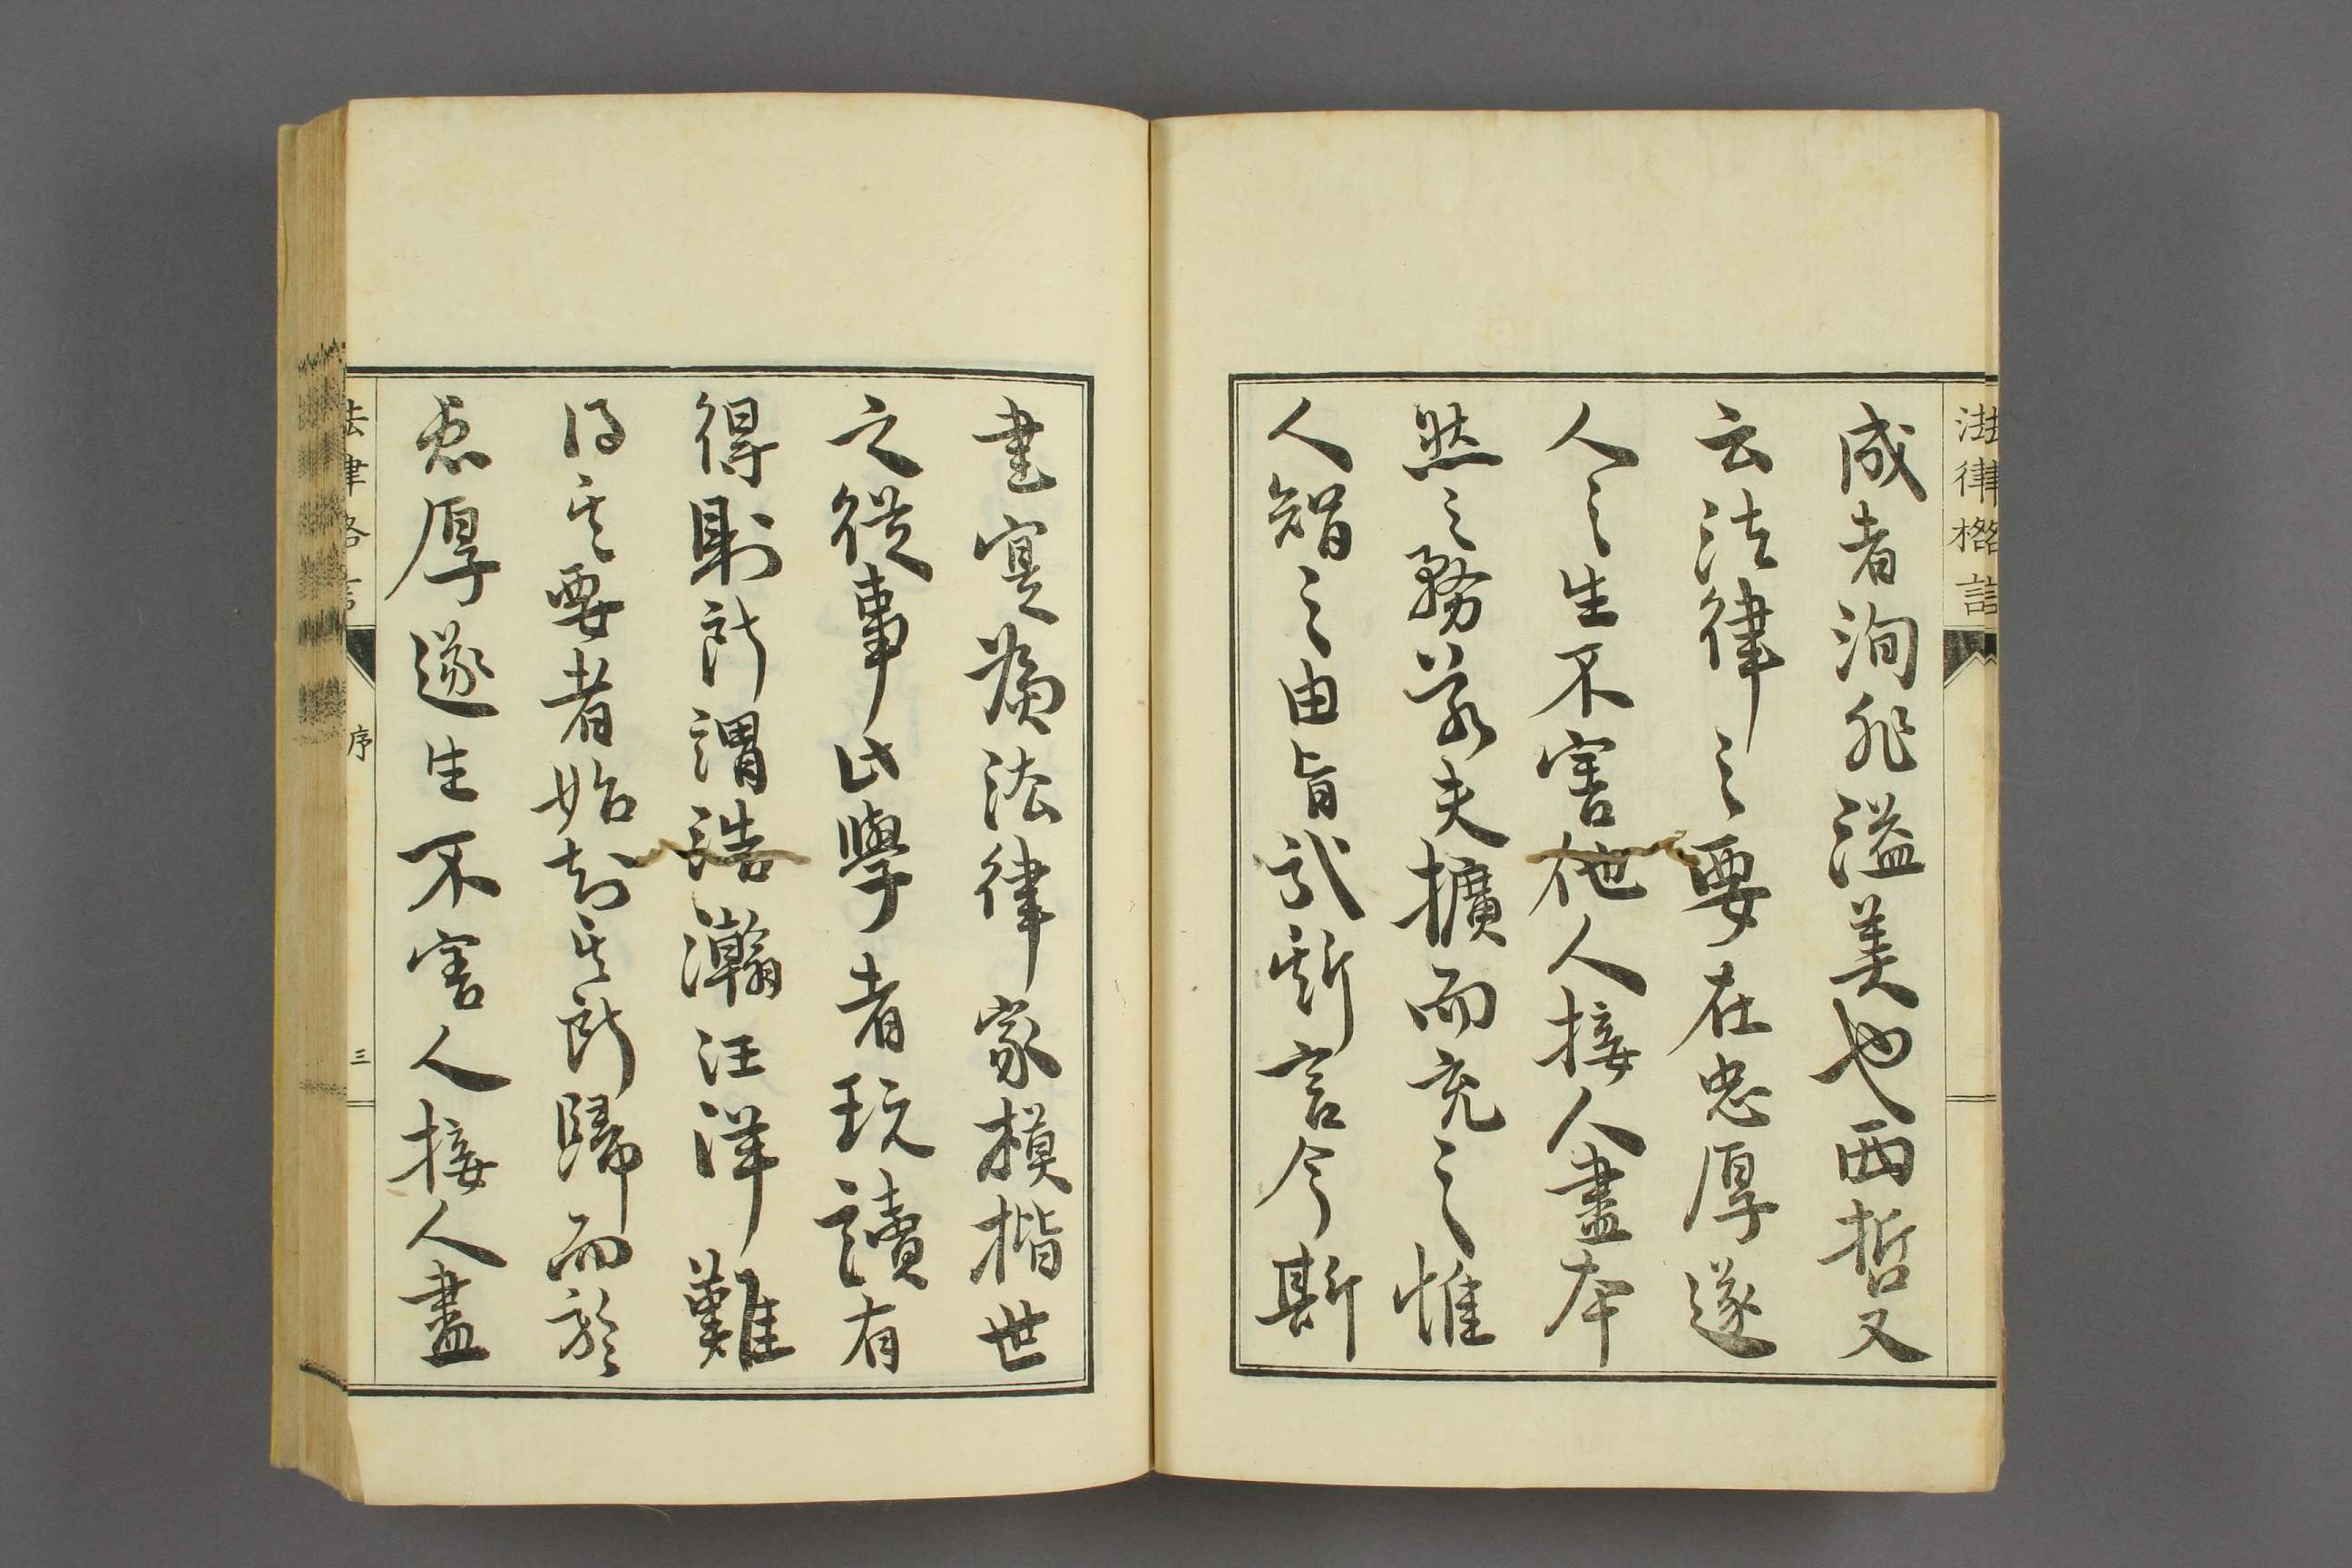 法律格言
成者洵非溢美也西哲又
云法律之要在忠厚遂
人之生不害他人接人盡本
然之務若夫擴而充之惟
人智之由旨哉斯言今斯
書寔為法律家模楷世
之從事此學者玩讀有
得則所謂浩瀚汪洋難
得其要者始知其所歸而於
忠厚遂生不害人接人盡
法律格言 序 三